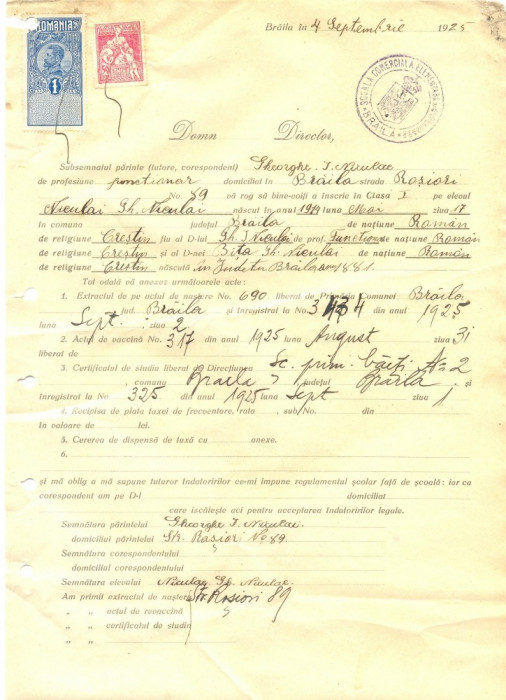 Brăila în 4 Septembrie 1925
ROMANIA
1
SCOALA COMERCIALA ELEMENTARA
BRĂILA
Domn Director,
Subsemnatul părinte (tutore, corespondent) Gheorghe I. Niculae
de profesiune ponctionar domiciliat în Brăila strada Rosiori
No. 89 vă rog să bine-voiți a înscrie în Clasa I pe elevul
Niculai Gh. Niculai născut în anul 1911 luna Mai ziua 17
în comuna județul Braila de națiune Român
de religiune Crestin fiu al D-lui Gh. I Niculai de prof. Functionar de națiune Român
de religiune Crestin și al D-nei Bita Gh. Niculai de națiune Român
de religiune Crestin născută in Judetu Braila anu 1881.
Tot odată vă anexez următoarele acte:
1. Extractul de pe actul de naștere No. 690 liberat de Primăria Comunei Brăila
jud. Brăila și înregistrat la No 3434 din anul 1925
luna Sept. ziua 2
2. Actul de vaccină No. 317 din anul 1925 luna August ziua 31
liberat de
3. Certificatul de studiu liberat de Direcțiunea Sc. prim. băeți No 2
, comuna Braila județul Brăila și
înregistrat la No 325 din anul 1925 luna Sept ziua 1
4. Recipisa de plata taxei de frecuentare, rata sub No. din
în valoare de lei.
5. Cererea de dispensă de taxă cu anexe.
6.
și mă oblig a mă supune tuturor îndatoririlor ce-mi impune regulamentul școlar față de școală: iar ca
corespondent am pe D-l domiciliat
care iscălește aci pentru acceptarea îndatoririlor legale.
Semnătura părintelui Gheorghe I. Niculai
domiciliul părintelui Str. Rosiori No 89
Semnătura corespondentului
domiciliul corespondentului
Semnătura elevului Niculae Gh. Niculae.
Am primit extractul de naștere Str. Rosiori 89
„ „ actul de revaccină
„ „ certificatul de studiu
„ „